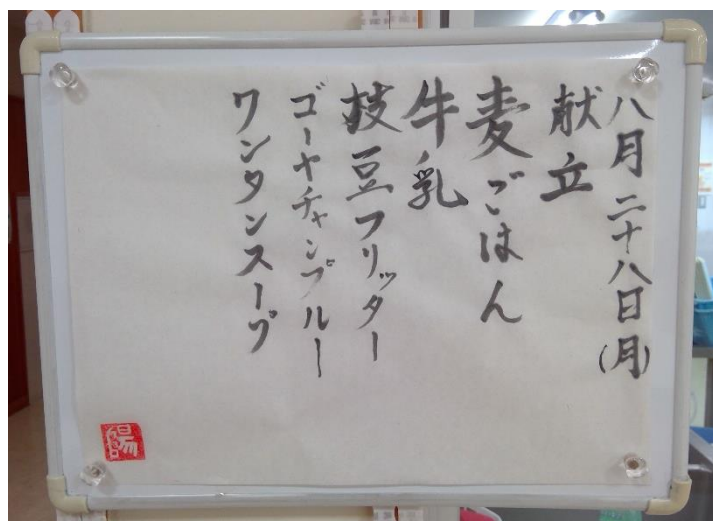 八月二十八日(月)
献立
麦ごはん
牛乳
枝豆フリッター
ゴーヤチャンプルー
ワンタンスープ